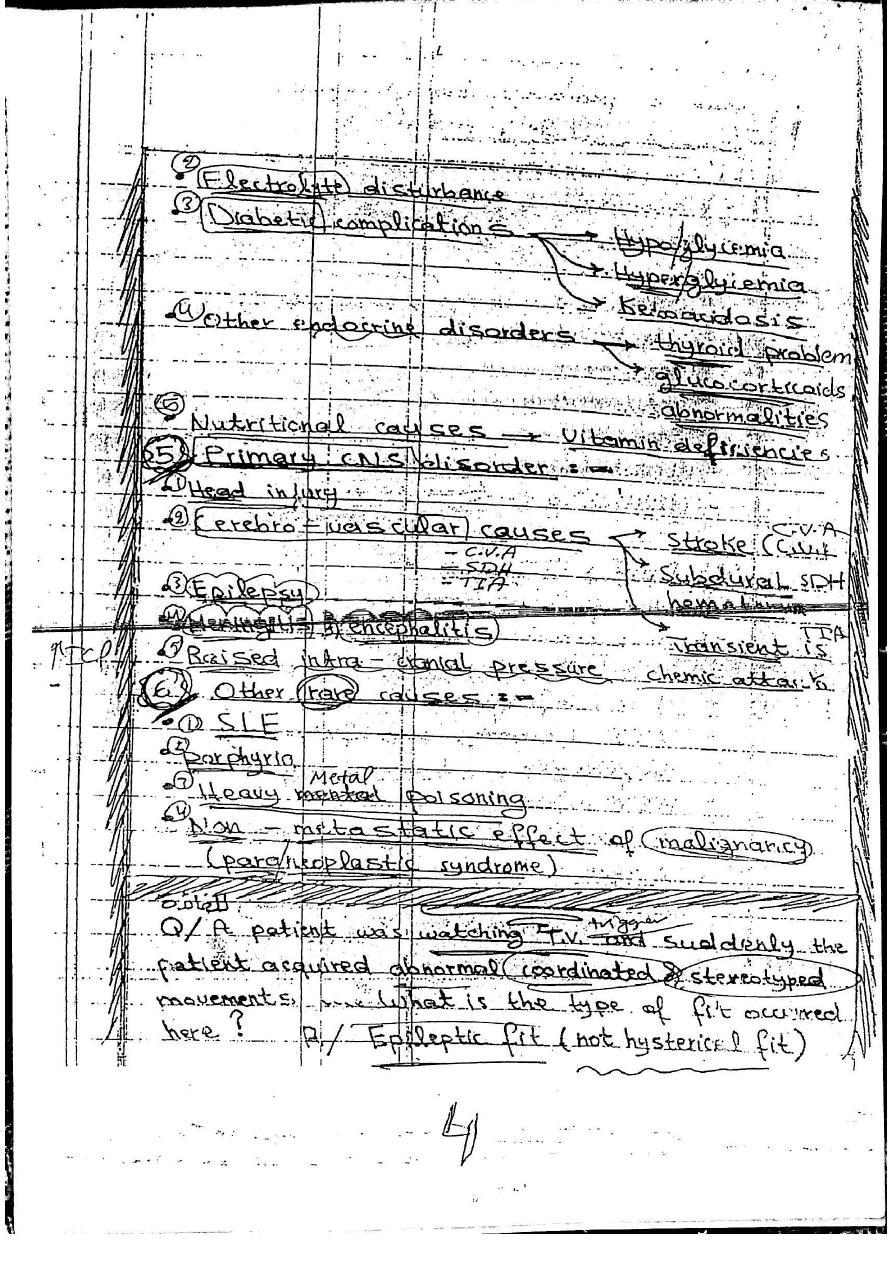 ② Electrolyte disturbance
③ Diabetic complications → Hypoglycemia
→ Hyperglycemia
→ Ketoacidosis
④ Other endocrine disorders → thyroid problem
→ glucocorticoids
abnormalities
⑤ Nutritional causes → Vitamin deficiencies
⑤ Primary CNS disorder :-
① Head injury
② Cerebro-vascular causes → Stroke (C.V.A
- C.V.A
- SDH
- TIA
→ Subdural SDH
hematoma
→ Transient is TIA
chemic attack
③ Epilepsy
④ Meningitis & encephalitis
⑤ Raised intra-cranial pressure
↑ICP
⑥ Other rare causes :-
① SLE
② Porphyria
③ Heavy mental Metal poisoning
④ Non-metastatic effect of malignancy
(paraneoplastic syndrome)
Q/ A patient was watching T.V. trigger and suddenly the
patient acquired abnormal coordinated & stereotyped
movements. .... What is the type of fit occurred
here? A/ Epileptic fit (not hysterical fit)
4